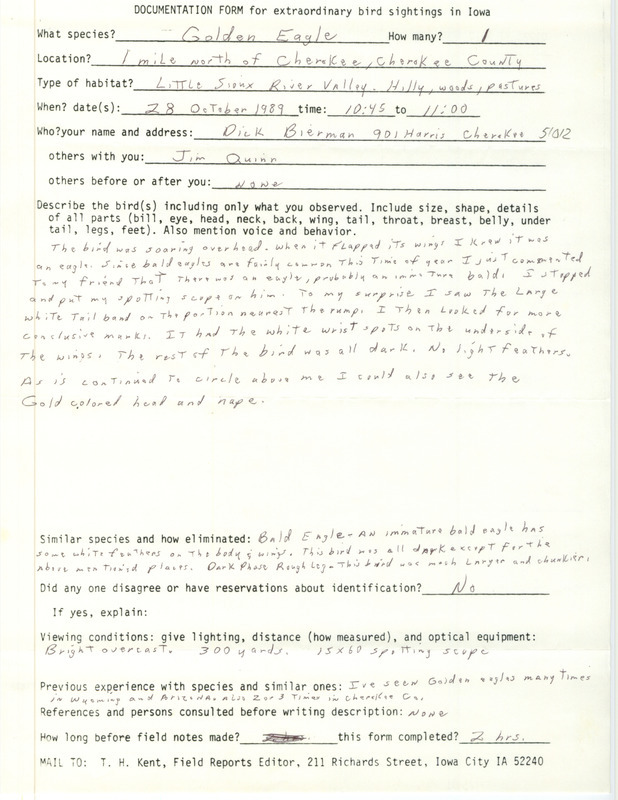 DOCUMENTATION FORM for extraordinary bird sightings in Iowa
What species? Golden Eagle How many? 1
Location? 1 mile north of Cherokee, Cherokee County
Type of habitat? Little Sioux River Valley. Hilly, woods, pastures
When? date(s): 28 October 1989 time: 10:45 to 11:00
Who?your name and address: Dick Bierman 901 Harris Cherokee 51012
others with you: Jim Quinn
others before or after you: none
Describe the bird(s) including only what you observed. Include size, shape, details
of all parts (bill, eye, head, neck, back, wing, tail, throat, breast, belly, under
tail, legs, feet). Also mention voice and behavior.
The bird was soaring overhead. When it flapped its wings I knew it was
an eagle. Since bald eagles are fairly common this time of year I just commented
to my friend that there was an eagle, probably an immature bald. I stopped
and put my spotting scope on him. To my surprise I saw the large
white tail band on the portion nearest the rump. I then looked for more
conclusive marks. It had the white wrist spots on the underside of
the wings. The rest of the bird was all dark. No light feathers.
As is continued to circle above me I could also see the
Gold colored head and nape.
Similar species and how eliminated: Bald Eagle - An immature bald eagle has
some white feathers on the body & wings. This bird was all dark except for the
above mentioned places. Dark Phase Rough Leg - This bird was much larger and chunkier.
Did any one disagree or have reservations about identification? No
If yes, explain:
Viewing conditions: give lighting, distance (how measured), and optical equipment:
Bright overcast. 300 yards. 15x60 spotting scope
Previous experience with species and similar ones: I've seen Golden eagles many times
in Wyoming and Arizona. Also 2 or 3 times in Cherokee Co.
References and persons consulted before writing description: none
How long before field notes made? this form completed? 2 hrs.
MAIL TO: T. H. Kent, Field Reports Editor, 211 Richards Street, Iowa City IA 52240